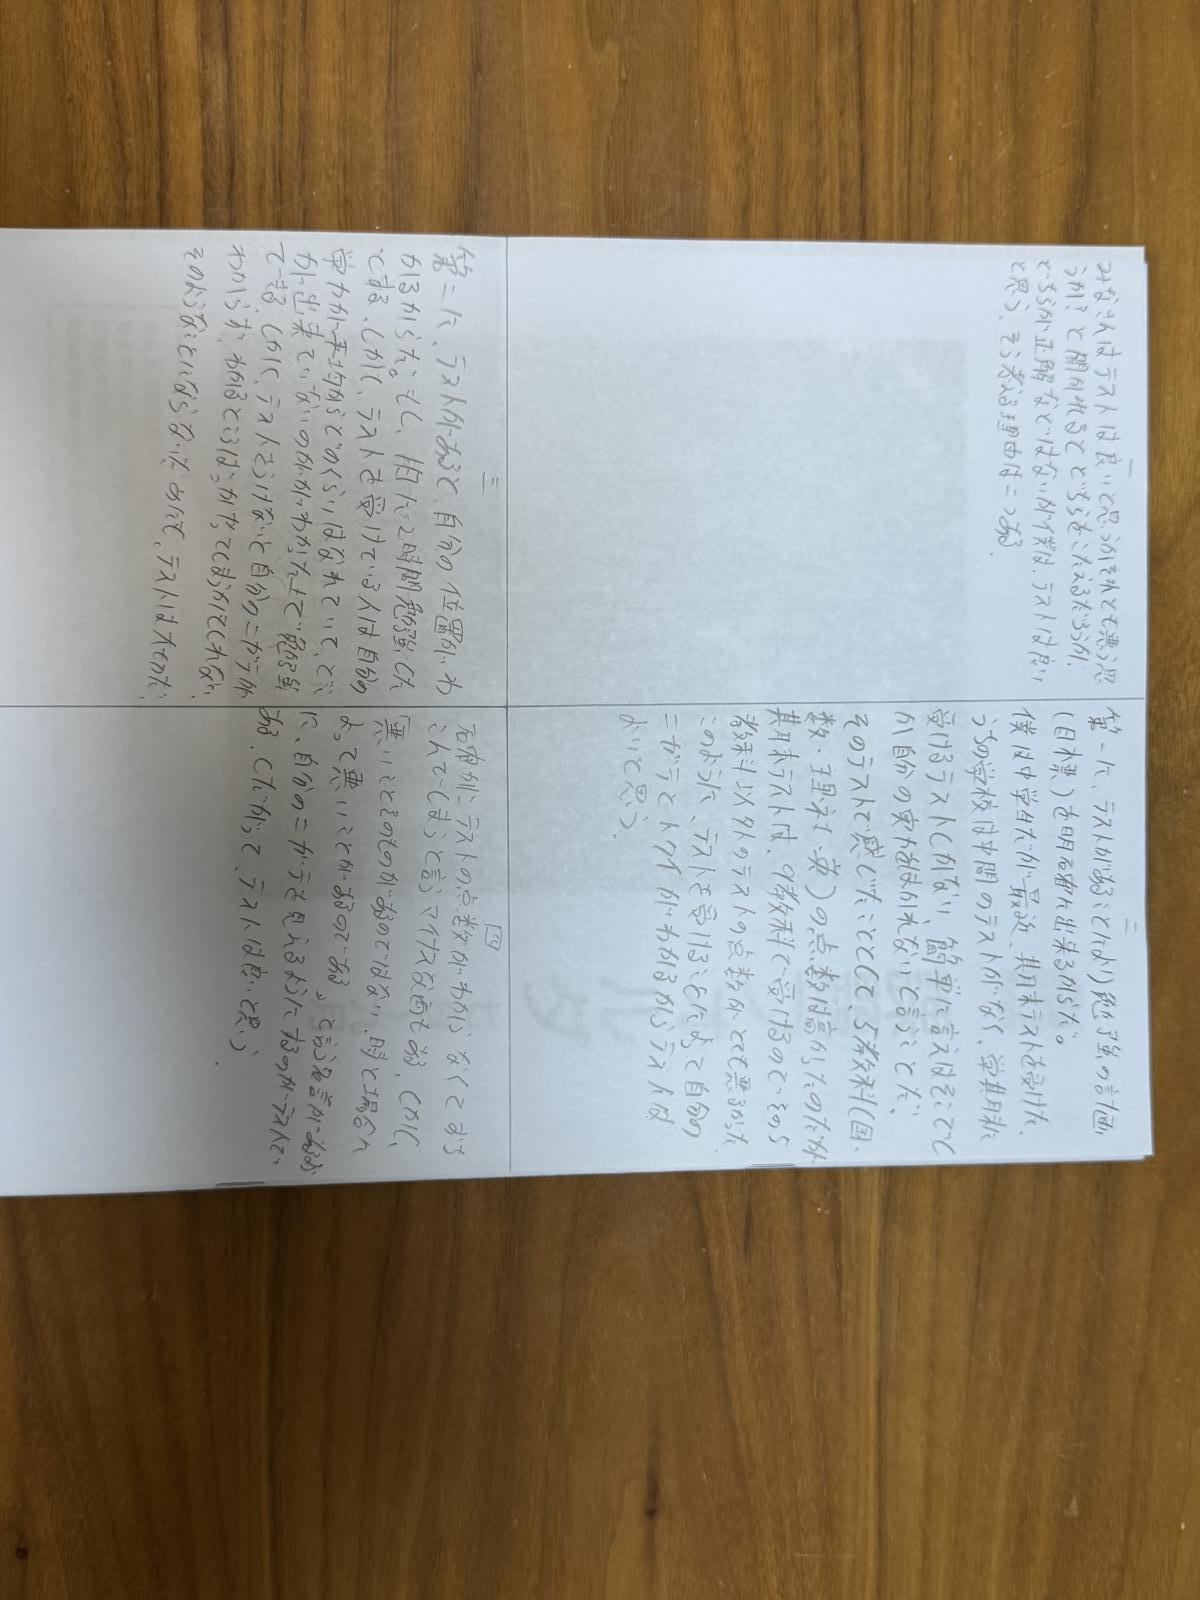 一
みなさんはテストは良いと思うかそれとも悪う思
うか？と聞かれるとどちらをこたえるだろうか。
どちらが正解などはないが僕は、テストは良い
と思う。そう考える理由は二つある。
二
第一に、テストがあることにより勉強の計画
(目標)を明確に出来るからだ。
僕は中学生だが最近、期末テストを受けた。
うちの学校は中間のテストがなく、学期末に
受けるテストしかない。簡単に言えばそこでし
か自分の実力をはかれないと言うことだ。
そのテストで感じたこととして、5教科(国・
数・理・社・英)の点数は高かったのだが
期末テストは、9教科で受けるのでその5
教科以外のテストの点数がとても悪かった
このように、テストを受けることによって自分の
ニガテとトクイがわかるからテストは
よいと思う。
三
第二に、テストがあると、自分の位置がわ
かるからだ。もし、1日に2時間勉強した
とする。しかし、テストを受けている人は自分の
学力が平均からどのくらいはなれていて、どこ
が出来ていないのかがわかった上で勉強
できる しかし、テストをうけないと自分のニガテが
わからず、わかるところばっかやってしまうかもしれない。
そのようなことにならないためにも、テストは大せつだ。
四
右有がにテストの点数がわからなくてもす
こんでしまうと言うマイナス面もある、しかし、
悪いことそのものがあるのではない、時と場合に
よって悪いことがあるのである。と言う名言があるよう
に、自分のニガテを見えるように するのがテストで、
ある、したがって、テストは良いと思う。